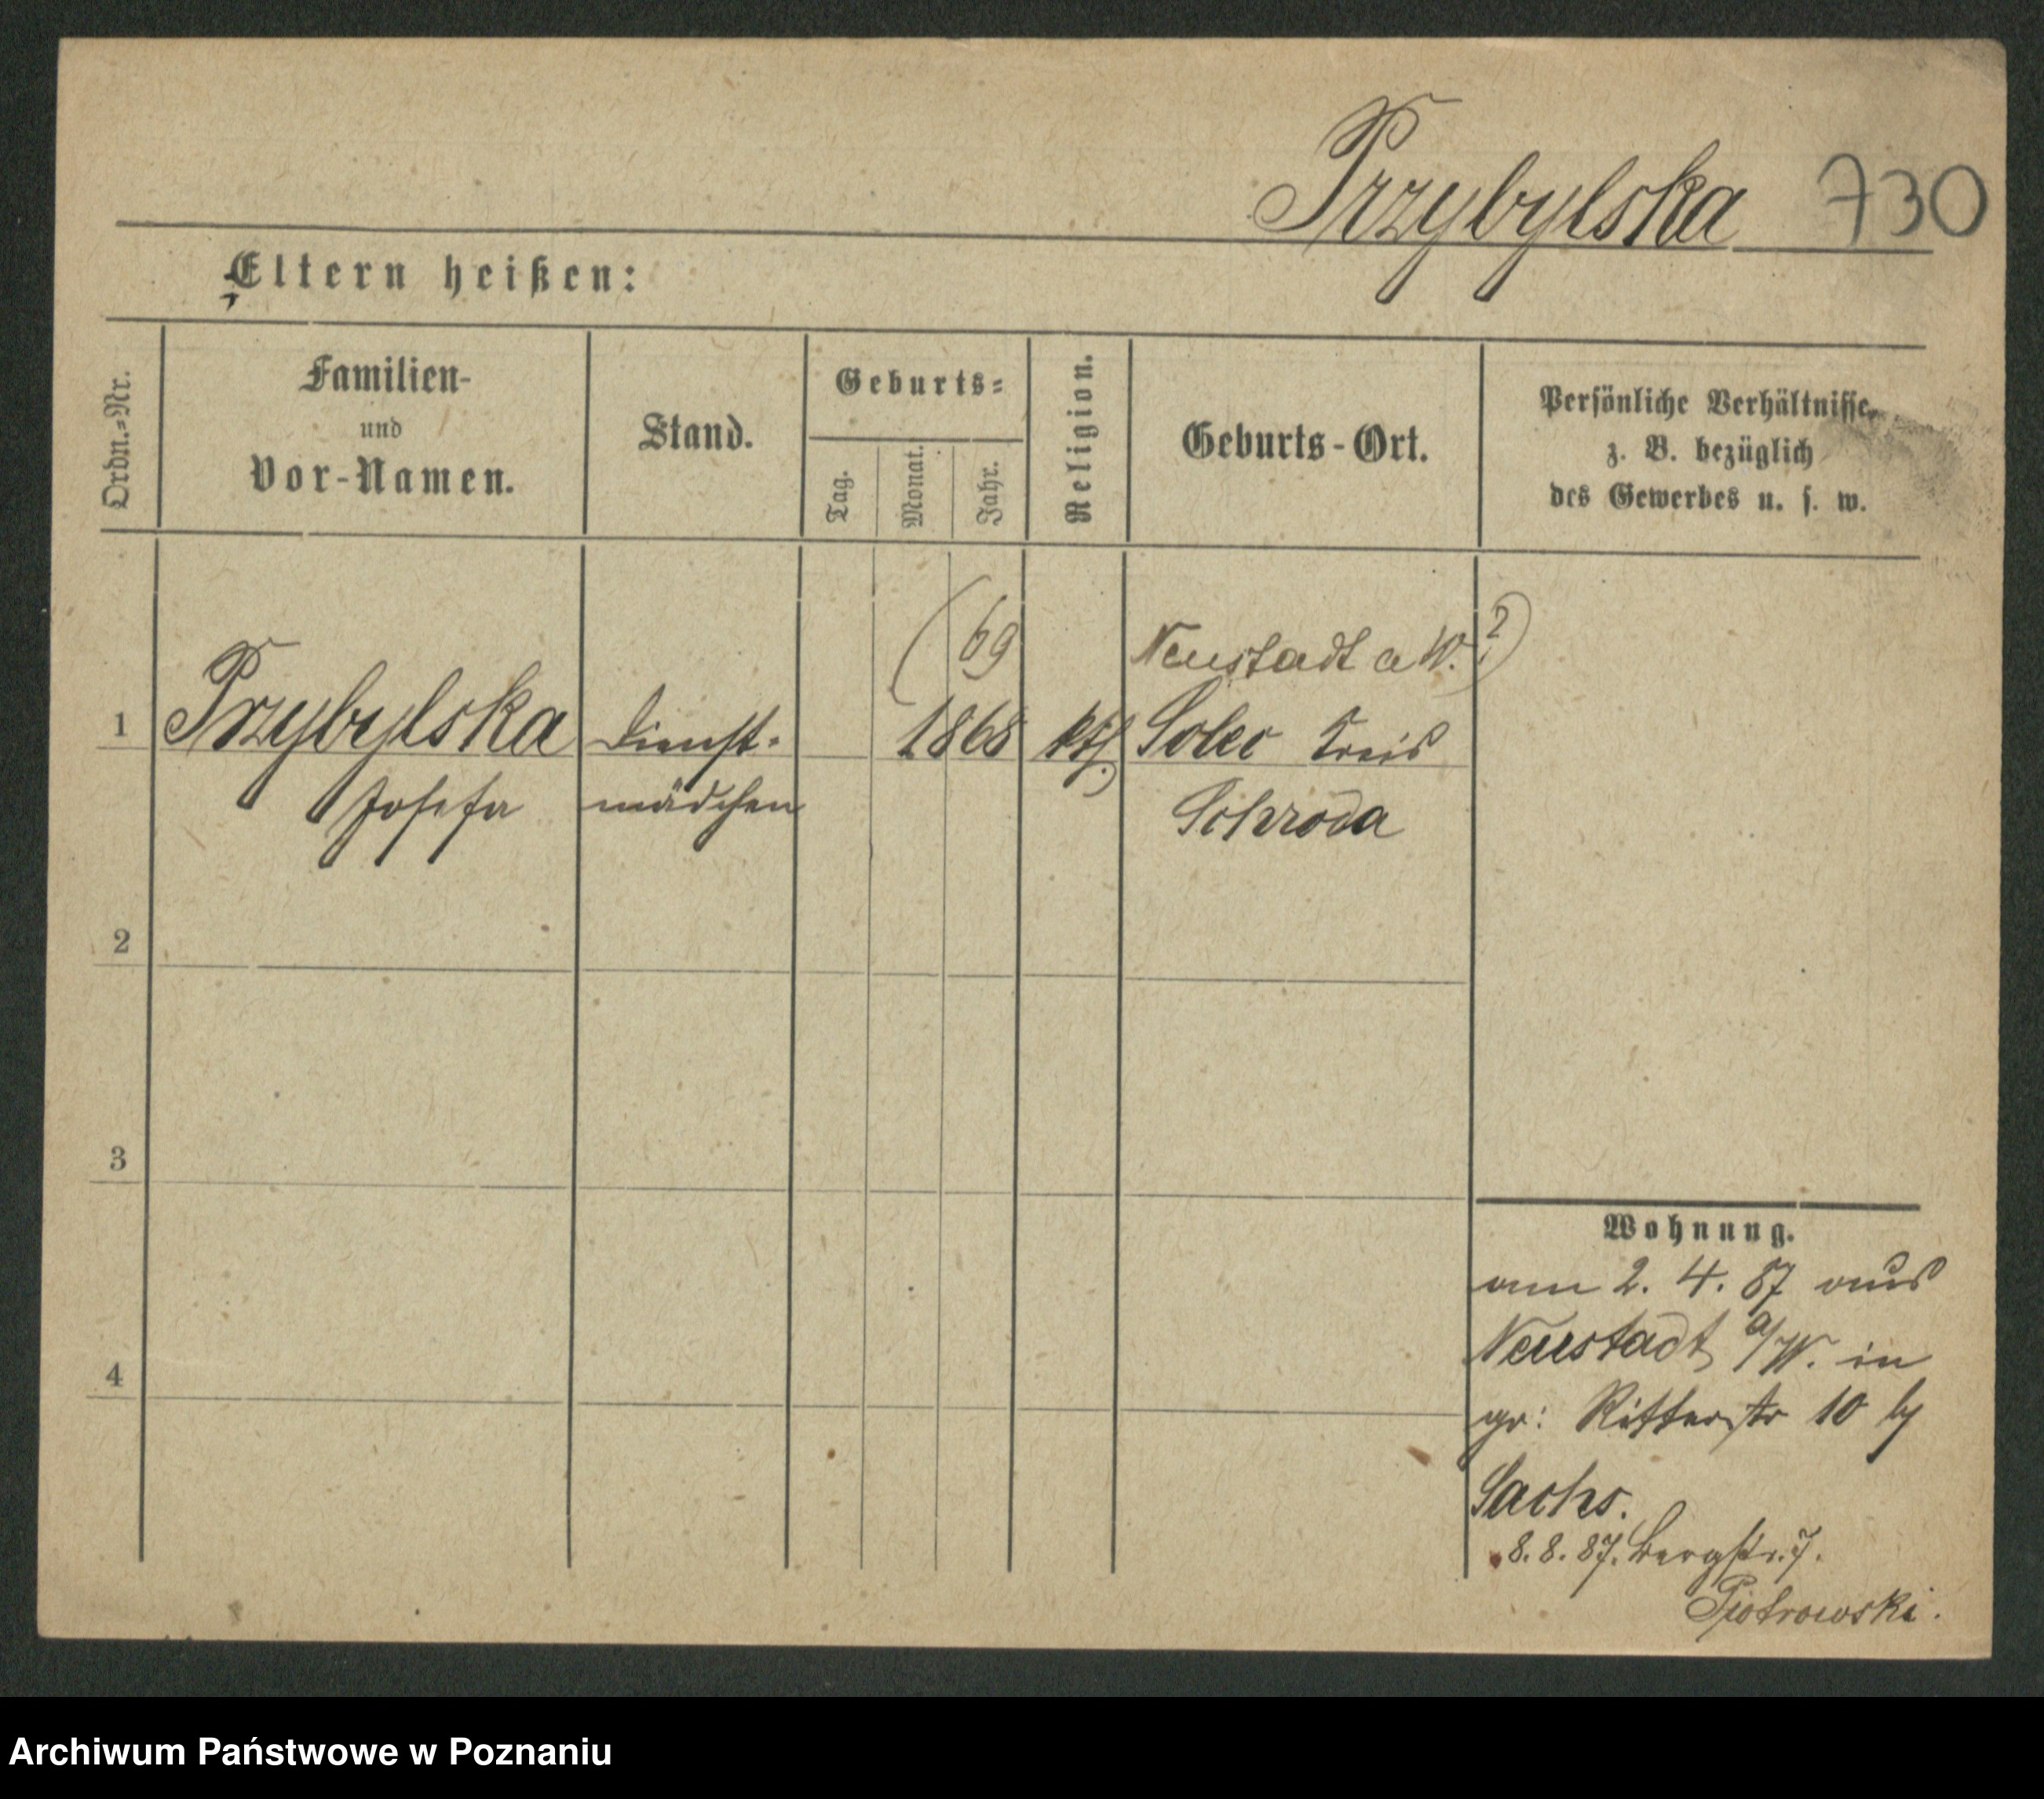 Przybylska 730
Eltern heißen:
Ordn.-Nr.
Familien-
und
Vor-Namen.
Stand.
Geburts-
Tag.
Monat.
Jahr.
Religion.
Geburts-Ort.
Persönliche Verhältnisse,
z. B. bezüglich
des Gewerbes u. s. w.
(69 Neustadt a W. ?)
1 Przybylska Dienst- 1868 kth Solec Kreis
Josefa mädchen Schroda
2
3
4
Wohnung.
am 2. 4. 87 aus
Neustadt a/W. in
gr: Ritterstr 10 by
Sachs.
8. 8. 87. Bergstr. 7.
Piotrowski.
Archiwum Państwowe w Poznaniu